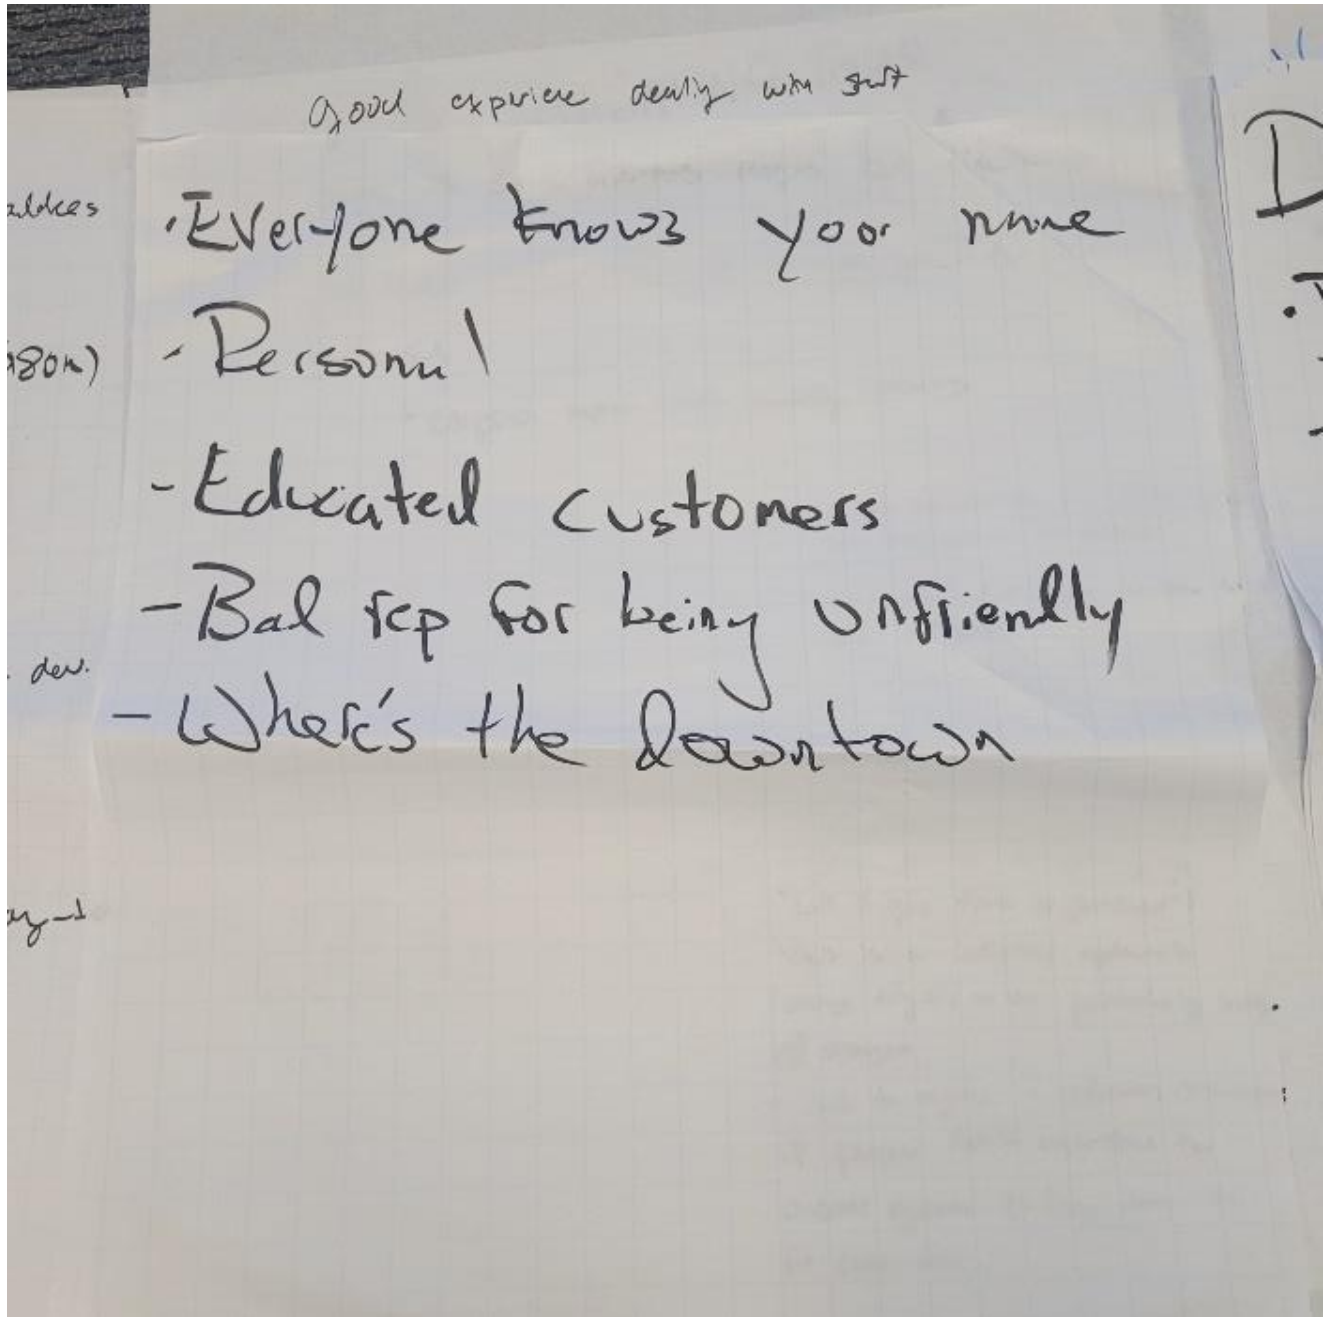 Good experience dealing with staff
·Everyone knows your name
- Personal
- Educated customers
- Bad rep for being unfriendly
- Where's the downtown
dev.
D